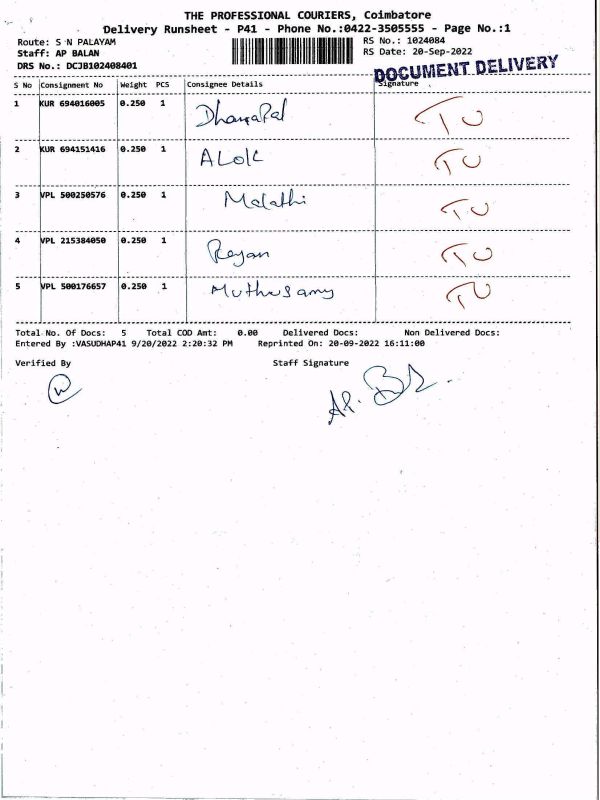 THE PROFESSIONAL COURIERS, Coimbatore
Delivery Runsheet - P41 - Phone No.:0422-3505555 - Page No.:1
Route: S N PALAYAM
Staff: AP BALAN
DRS No.: DCJB102408401
RS No.: 1024084
RS Date: 20-Sep-2022
DOCUMENT DELIVERY
S No Consignment No Weight PCS Consignee Details Signature
1 KUR 694016005 0.250 1 Dhanapal TU
2 KUR 694151416 0.250 1 ALOK TU
3 VPL 500250576 0.250 1 Malathi TU
4 VPL 215384050 0.250 1 Rayan TU
5 VPL 500176657 0.250 1 Muthusamy TU
Total No. Of Docs: 5 Total COD Amt: 0.00 Delivered Docs: Non Delivered Docs:
Entered By :VASUDHAP41 9/20/2022 2:20:32 PM Reprinted On: 20-09-2022 16:11:00
Verified By Staff Signature
AP.